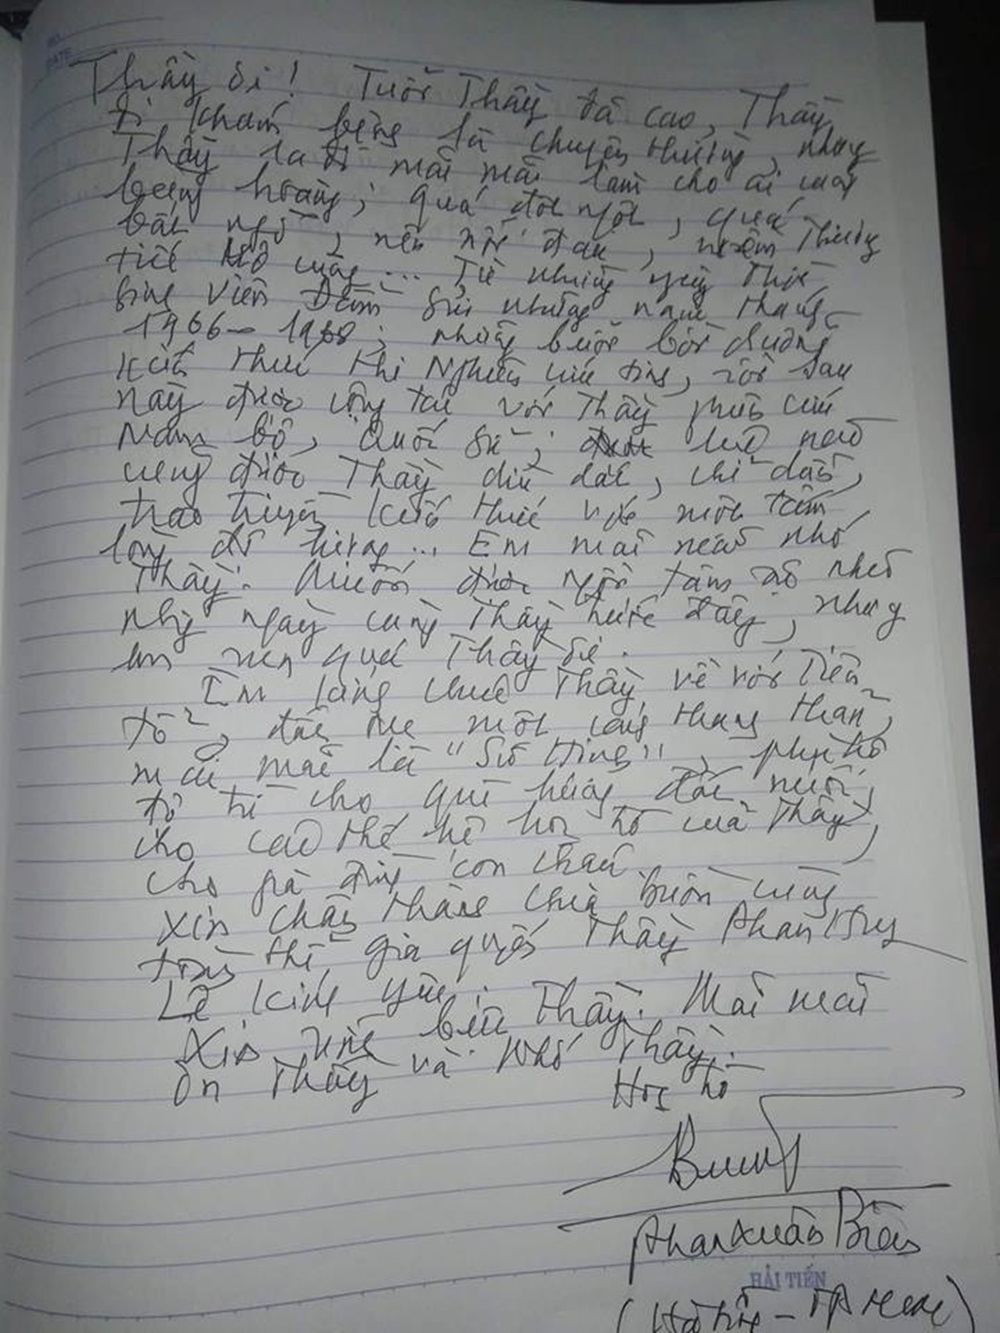 Thầy ơi! Tuổi Thầy đã cao, Thầy
đi khám bệnh là chuyện thường, nhưng
Thầy ra đi mãi mãi làm cho ai cũng
bàng hoàng; quá đột ngột, quá
bất ngờ, nên xót đau, niềm thương
tiếc vô cùng... Từ những ngày Thực
sinh viên những năm tháng
1966 - 1968; những buổi bồi dưỡng
kiến thức khi Nghiên cứu sinh, rồi sau
này được công tác với Thầy
Nam bộ, cuối lúc nào
cũng được Thầy dìu dắt, chỉ dẫn,
trao truyền kiến thức với một tấm
lòng độ lượng... Em mãi mãi nhớ
Thầy. Muốn được ngồi tâm sự nhiều
những ngày cùng Thầy trước đây, nhưng
Thầy ơi.
Em kính chúc Thầy về với Tiên
tổ, đất mẹ một cách thanh thản,
mãi mãi là "Sử Hùng", phù hộ
độ trì cho quê hương đất nước,
cho các thế hệ học trò của Thầy,
cho gia đình con cháu.
Xin chân thành chia buồn cùng
toàn thể gia quyến Thầy Phan Huy
Lê kính yêu.
Xin vĩnh biệt Thầy. Mãi mãi
ơn Thầy và Nhớ Thầy.
Học trò
Phan Xuân Biên
HẢI TIẾN